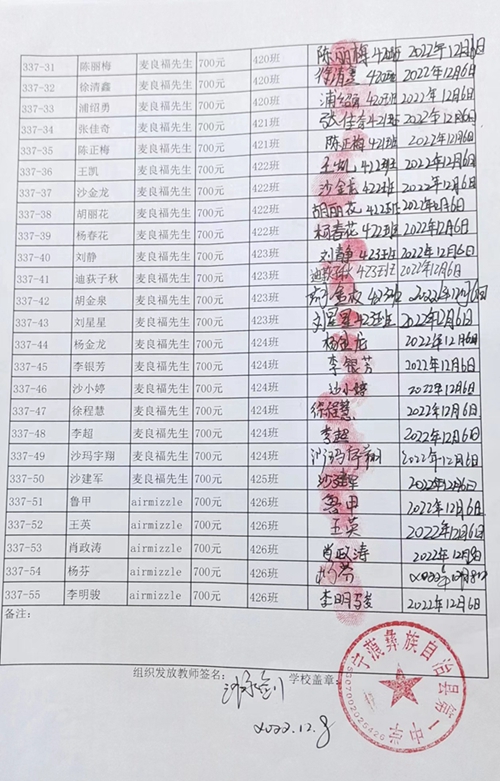 337-31 陈丽梅 麦良福先生 700元 420班 陈丽梅 420班 2022年12月6日
337-32 徐清鑫 麦良福先生 700元 420班 徐清鑫 420班 2022年12月6日
337-33 浦绍勇 麦良福先生 700元 420班 浦绍勇 420班 2022年12月6日
337-34 张佳奇 麦良福先生 700元 421班 张佳奇 421班 2022年12月6日
337-35 陈正梅 麦良福先生 700元 421班 陈正梅 421班 2022年12月6日
337-36 王凯 麦良福先生 700元 422班 王凯 422班 2022年12月6日
337-37 沙金龙 麦良福先生 700元 422班 沙金龙 422班 2022年12月6日
337-38 胡丽花 麦良福先生 700元 422班 胡丽花 422班 2022年12月6日
337-39 杨春花 麦良福先生 700元 422班 杨春花 422班 2022年12月6日
337-40 刘静 麦良福先生 700元 423班 刘静 423班 2022年12月6日
337-41 迪荻子秋 麦良福先生 700元 423班 423班 2022年12月6日
337-42 胡金泉 麦良福先生 700元 423班 423班 2022年12月6日
337-43 刘星星 麦良福先生 700元 423班 刘星星 423班 2022年12月6日
337-44 杨金龙 麦良福先生 700元 424班 杨金龙 2022年12月6日
337-45 李银芳 麦良福先生 700元 424班 李银芳 2022年12月6日
337-46 沙小婷 麦良福先生 700元 424班 沙小婷 2022年12月6日
337-47 徐程慧 麦良福先生 700元 424班 徐程慧 2022年12月6日
337-48 李超 麦良福先生 700元 424班 李超 2022年12月6日
337-49 沙玛宇翔 麦良福先生 700元 424班 沙玛宇翔 2022年12月6日
337-50 沙建军 麦良福先生 700元 425班 沙建军 2022年12月6日
337-51 鲁甲 airmizzle 700元 426班 鲁甲 2022年12月6日
337-52 王英 airmizzle 700元 426班 王英 2022年12月6日
337-53 肖政涛 airmizzle 700元 426班 肖政涛 2022年12月
337-54 杨芬 airmizzle 700元 426班 杨芬 2022年12月8日
337-55 李明骏 airmizzle 700元 426班 李明骏 2022年12月6日
备注：
组织发放教师签名： 学校盖章：
宁蒗彝族自治县第一中学
2022.12.8